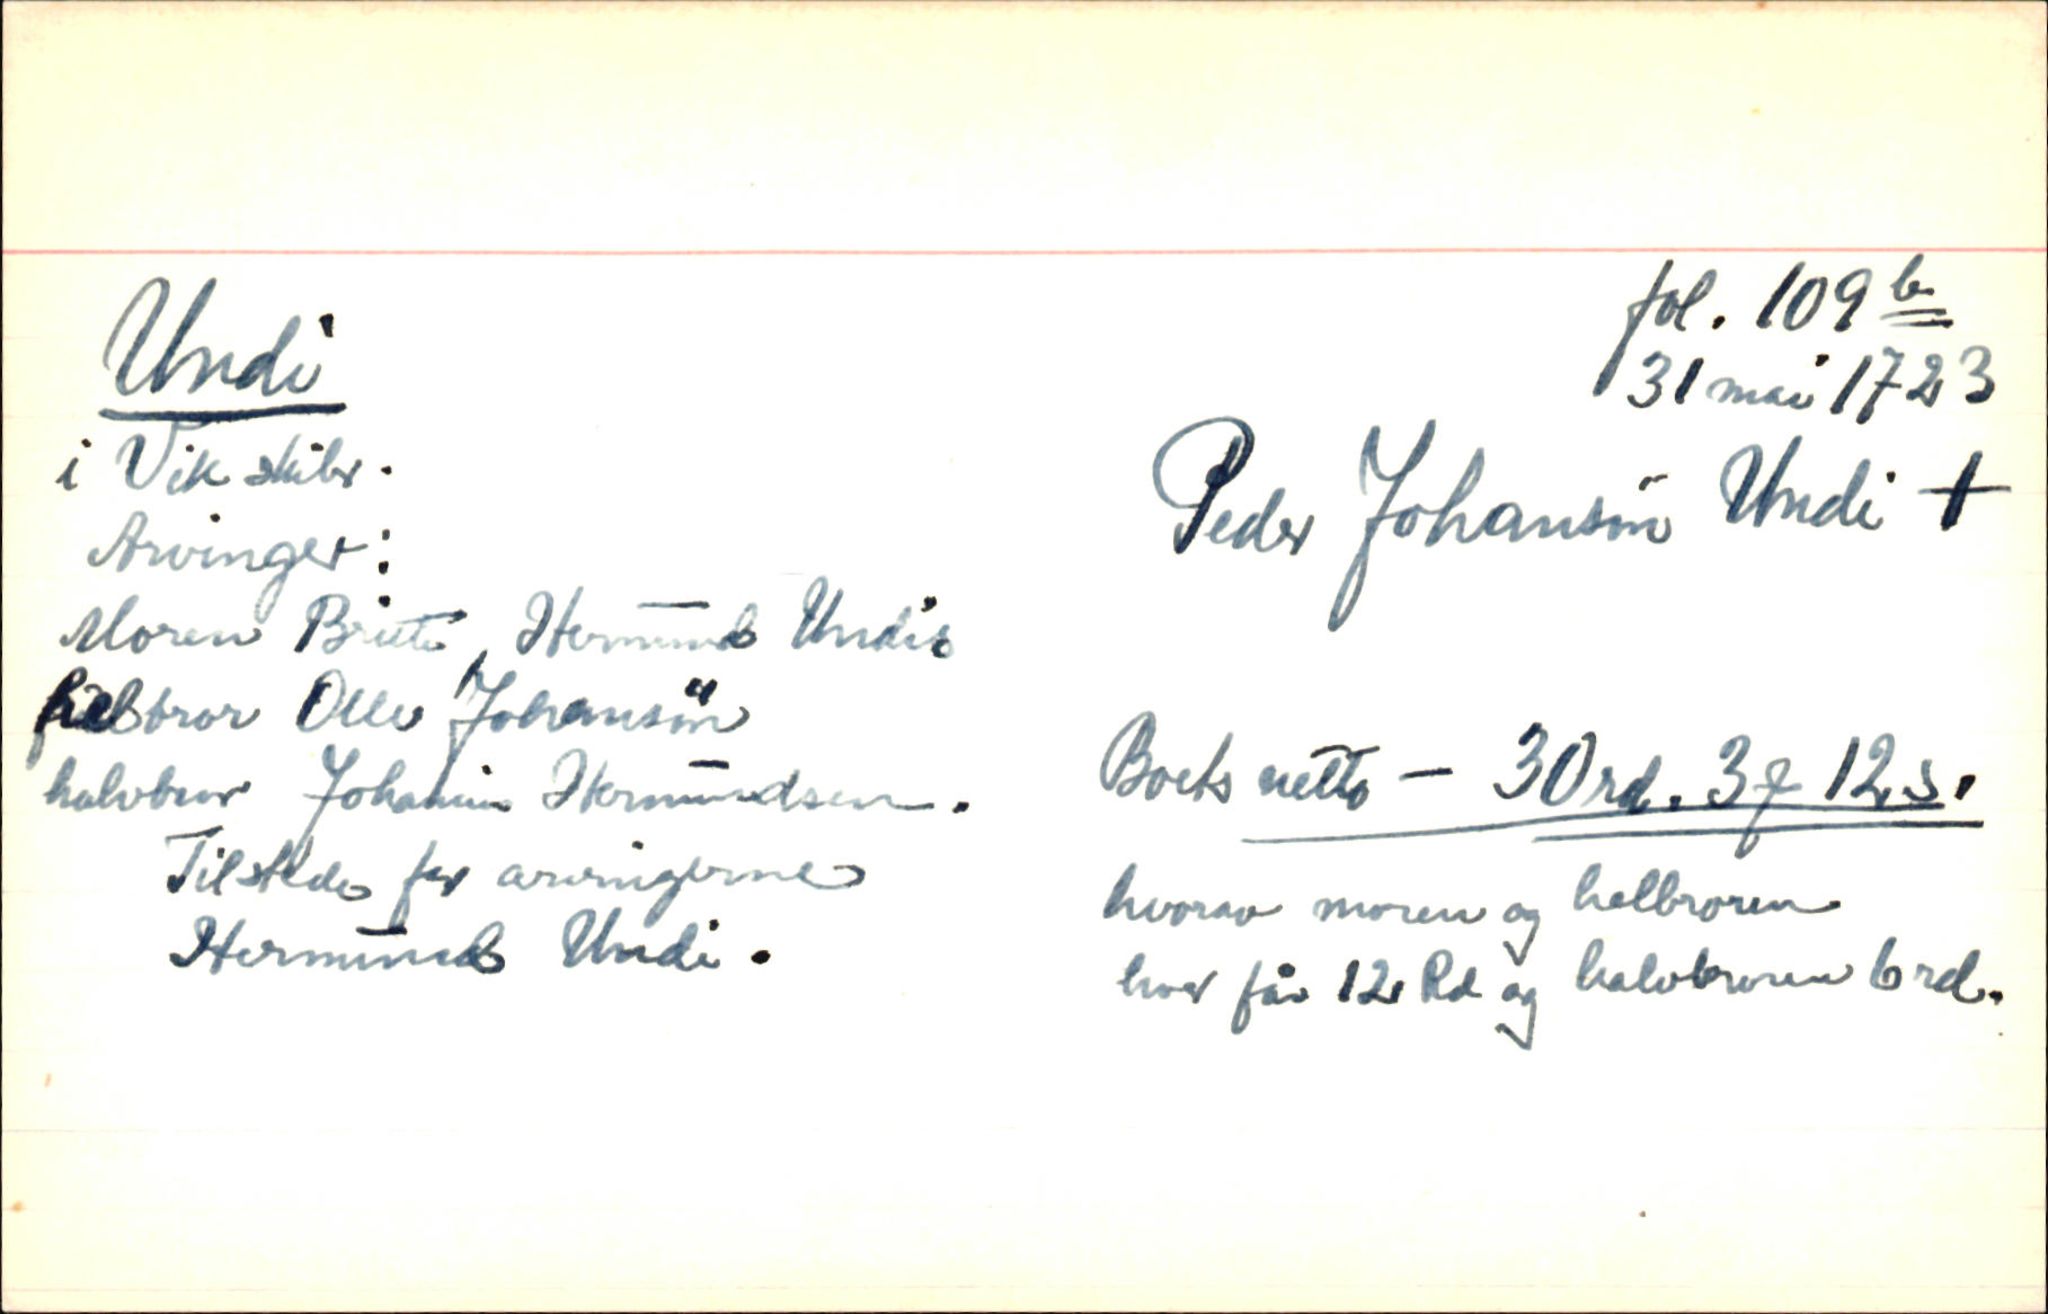 fol. 109 b
31 mai 1723
Undi
i Vik skibr.
Peder Johansön Undi †
Arvinger:
Moren Brite, Hermund Undis
helbror Olle Johansön
halvbror Johannis Hermundsen.
Tilstede for arvingerne
Hermund Undi.
Boets netto — 30 rd. 3 # 12 s.
hvorav moren og helbroren
hver får 12 Rd og halvbroren 6 rd.